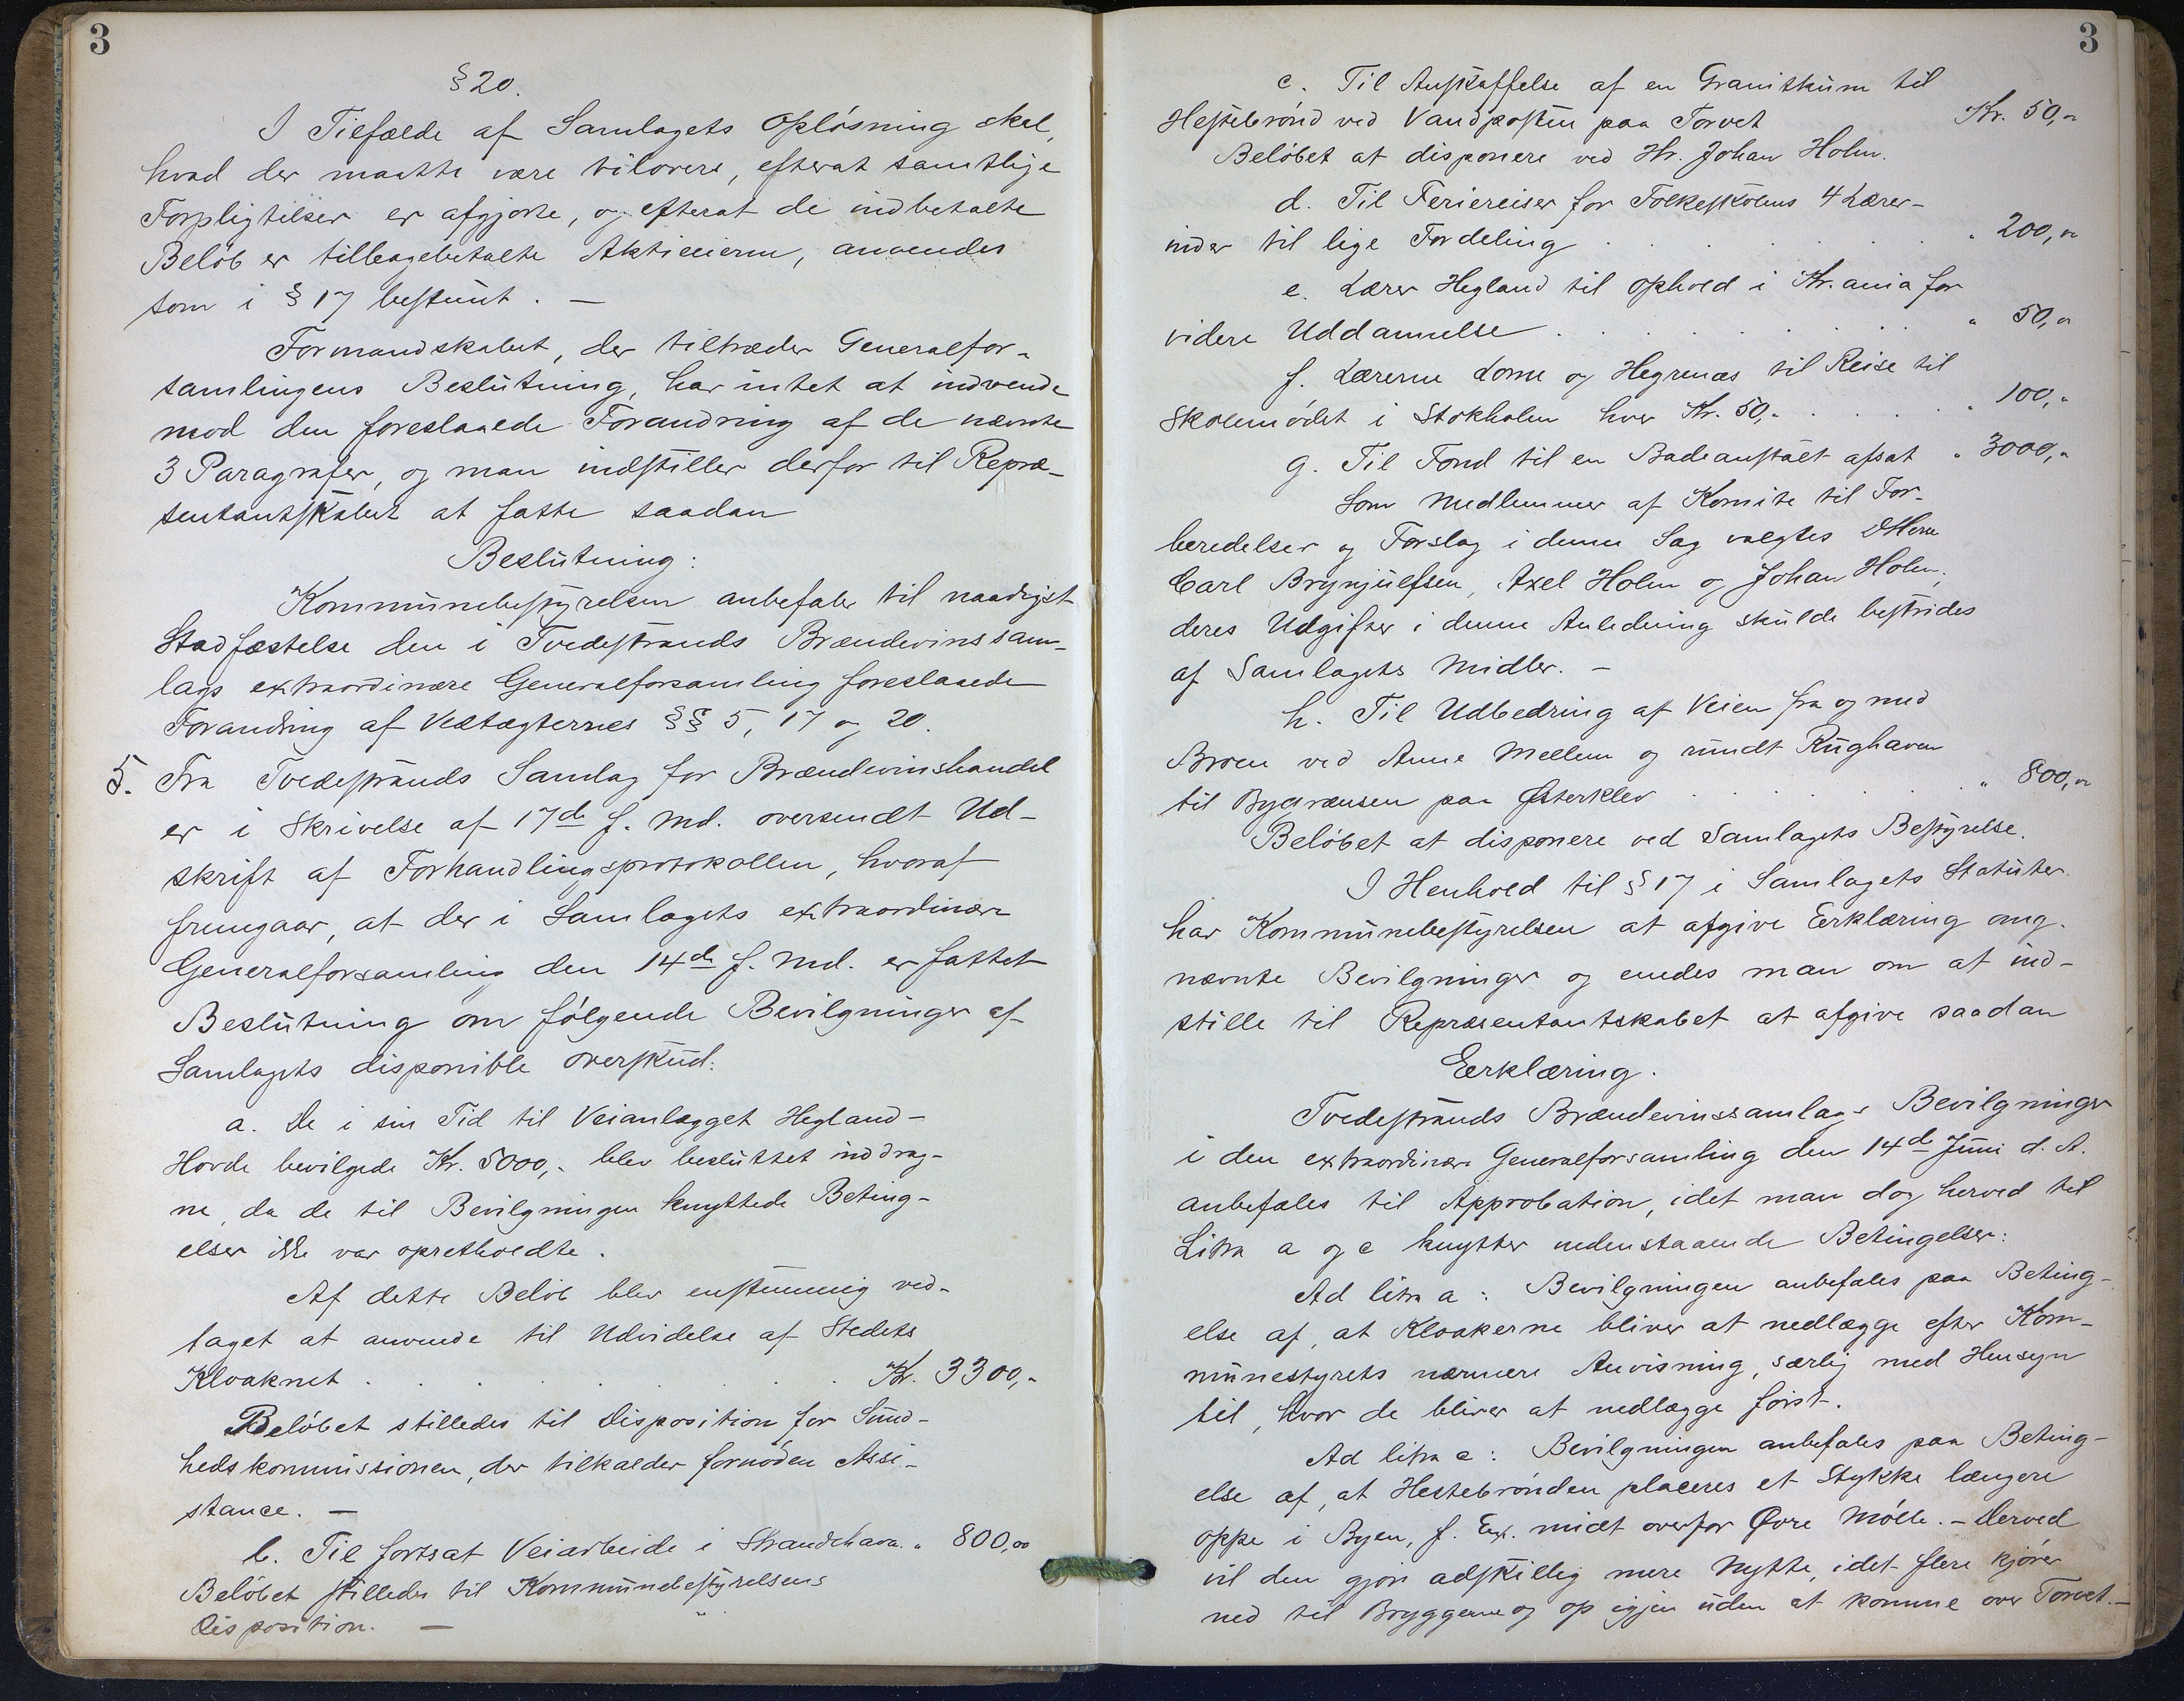 3
§ 20.
I Tilfælde af Samlagets Opløsning skal,
hvad der maatte være tilovers, efterat samtlige
Forpligtelser er afgjorte, og efterat de indbetalte
Beløb er tilbagebetalte Aktieeierne, anvendes
som i § 17 bestemt. —
Formandskabet, der tiltræder Generalfor-
samlingens Beslutning, har intet at indvende
mod den foreslaaede Forandring af de nævnte
3 Paragrafer, og man indstiller derfor til Repræ-
sentantskabet at fatte saadan
Beslutning:
Kommunebestyrelsen anbefaler til naadigst
Stadfæstelse den i Tvedestrands Brændevinssam-
lags extraordinære Generalforsamling foreslaaede
Forandring af Vedtægternes §§ 5, 17 og 20.
5. Fra Tvedestrands Samlag for Brændevinshandel
er i Skrivelse af 17de f. Md. oversendt Ud-
skrift af Forhandlingsprotokollen, hvoraf
fremgaar, at der i Samlagets extraordinære
Generalforsamling den 14de f. Md. er fattet
Beslutning om følgende Bevilgninger af
Samlagets disponible Overskud:
a. De i sin Tid til Veianlægget Hegland-
Hovde bevilgede Kr. 5000,- blev besluttet inddrag-
ne, da de til Bevilgningen knyttede Beting-
elser ikke var opretholdte.
Af dette Beløb blev enstemmig ved-
taget at anvende til Udvidelse af Stedets
Kloaknet . . . . . . . Kr. 3300,-
Beløbet stilledes til Disposition for Sund-
hedskommissionen, der tilkalder fornøden Assi-
stance. —
b. Til fortsat Veiarbeide i Strandehava. " 800,00
Beløbet stilledes til Kommunebestyrelsens
Disposition. —
3
c. Til Anskaffelse af en Granitkum til
Hestebrønd ved Vandposten paa Torvet Kr. 50,"
Beløbet at disponere ved Hr. Johan Holm.
d. Til Feriereiser for Folkeskolens 4 Lærer-
inder til lige Fordeling . . . . . " 200,"
e. Lærer Hegland til Ophold i Kr.ania for
videre Uddannelse . . . . . . . " 50,"
f. Lærerne Lome og Hegrenæs til Reise til
Skolemødet i Stokholm hver Kr. 50,- . . . . " 100,"
g. Til Fond til en Badeanstalt afsat " 3000,"
Som Medlemmer af Komite til For-
beredelser og Forslag i denne Sag valgtes DHerre
Carl Brynjulfsen, Axel Holm og Johan Holm,
deres Udgifter i denne Anledning skulde bestrides
af Samlagets Midler. —
h. Til Udbedring af Veien fra og med
Broen ved Anne Mellem og rundt Rughaven
til Bygrænsen paa Østerklev . . . . . " 800,"
Beløbet at disponere ved Samlagets Bestyrelse.
I Henhold til § 17 i Samlagets Statuter
har Kommunebestyrelsen at afgive Erklæring ang.
nævnte Bevilgninger og enedes man om at ind-
stille til Repræsentantskabet at afgive saadan
Erklæring.
Tvedestrands Brændevinssamlags Bevilgninger
i den extraordinære Generalforsamling den 14de Juni d. A.
anbefales til Approbation, idet man dog herved til
Litra a og c knytter nedenstaaende Betingelser:
Ad litra a: Bevilgningen anbefales paa Beting-
else af, at Kloakerne bliver at nedlægge efter Kom-
munestyrets nærmere Anvisning, særlig med Hensyn
til, hvor de bliver at nedlægge først.
Ad litra c: Bevilgningen anbefales paa Beting-
else af, at Hestebrønden placeres et Stykke længere
oppe i Byen, f. Ex. midt overfor Øvre Mølle. – Derved
vil den gjøre adskillig mere Nytte, idet flere kjører
ned til Bryggerne og op igjen uden at komme over Torvet. —